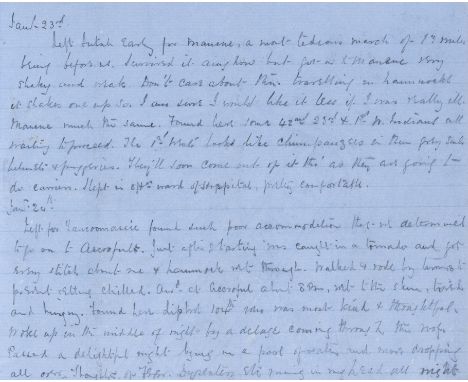 Jany 23rd
Left Sutah Early for Mansue, a most tedious march of 19 miles
being before us. Survived it anyhow but got in to Mansue very
shaky and weak. Don't care about this travelling in hammocks
it shakes one up so. I am sure I would like it less if I was really ill.
Mansue much the same. Found here some 42nd 23rd & 1st W. Indians all
waiting to proceed. The 1st West looks like chimpanzees in their grey
helmets & puggeries. They'll soon come out of it tho' as they are going to
do carriers. Slept in ward of Hospital, pretty comfortable.
Jany 24th
Left for found such poor accommodation that we determined
to go on to Accroful. Just after starting was caught in a tornado and got
every stitch about one & hammock wet through. Walked & rode by turns to
prevent getting chilled. Arrd at Accroful about 3 pm, wet to the skin, tired
and hungry. Found here who was most kind & thoughtful.
Woke up in the middle of night by a deluge coming through the roof.
Passed a delightful night lying in a pool of water and more dropping
all over. Thoughts of Fever, Dysentery Etc running in my head all night